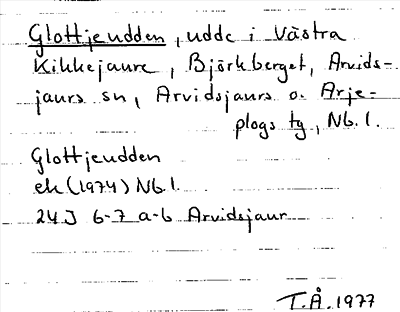 Glottjeudden, udde i Västra
Kikkejaure, Björkberget, Arvids-
jaurs sn, Arvidsjaurs o. Arje-
plogs tg, Nb. l.
Glottjeudden
ek (1974) Nb. l.
24J 6-7 a-b Arvidsjaur
T.Å. 1977